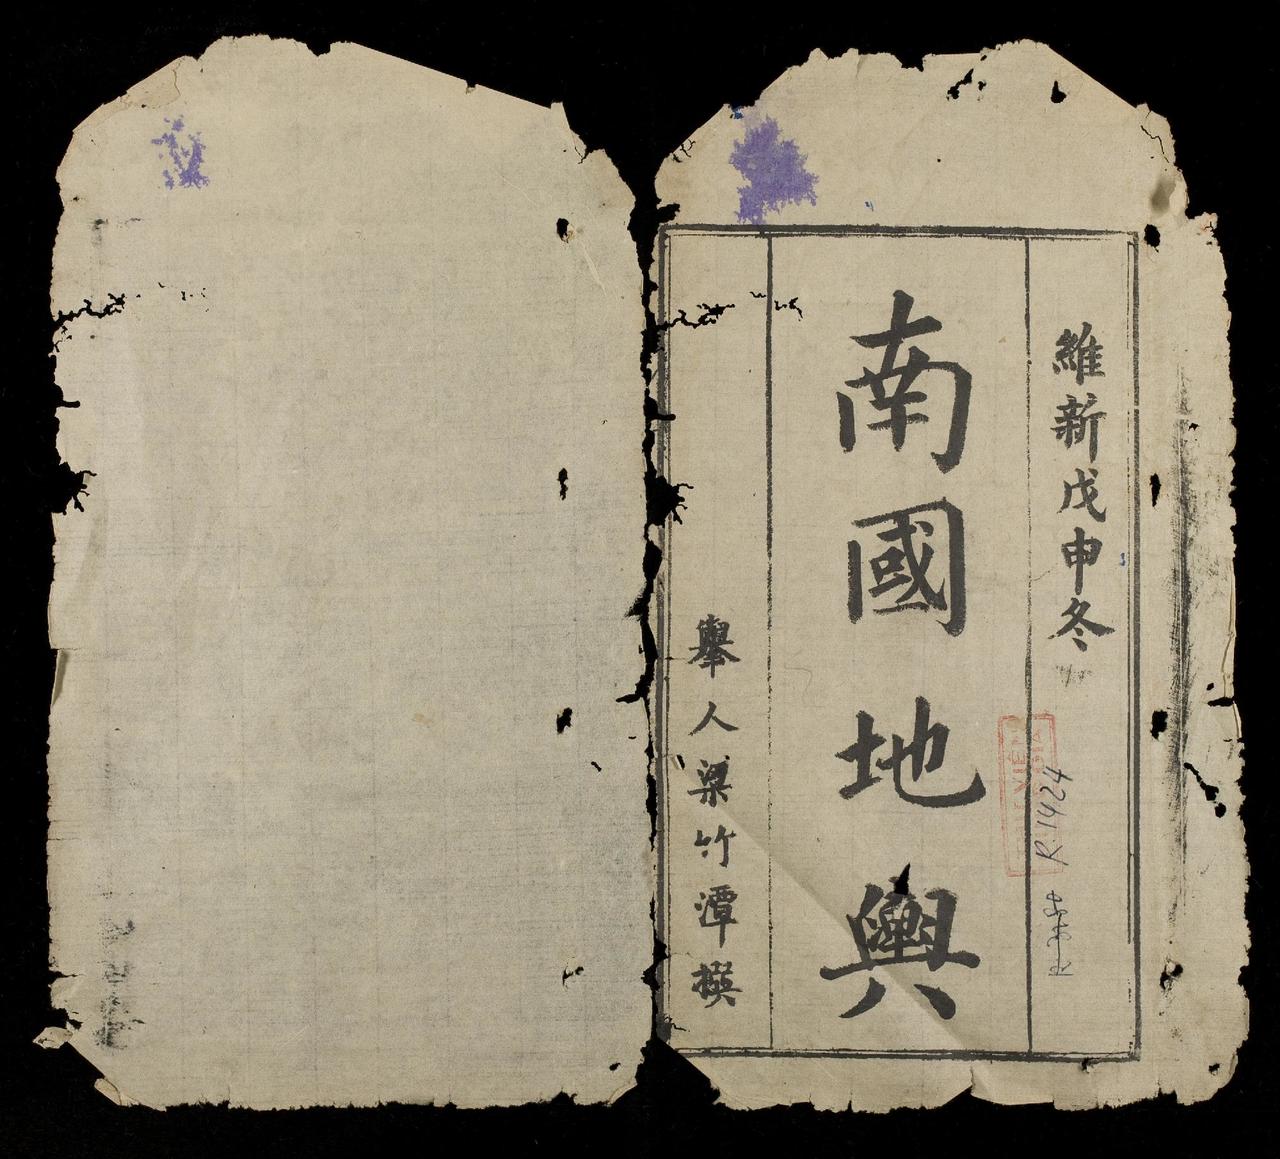 維新戊申冬
南國地輿
舉人梁竹潭撰
R 1424